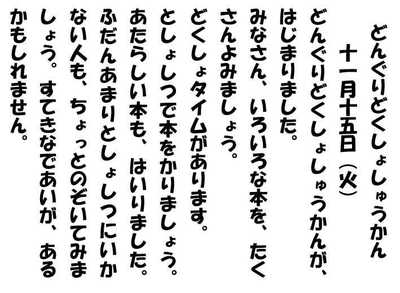 どんぐりどくしょしゅうかん
十一月十五日（火）
どんぐりどくしょしゅうかんが、
はじまりました。
みなさん、いろいろな本を、たく
さんよみましょう。
どくしょタイムがあります。
としょしつで本をかりましょう。
あたらしい本も、はいりました。
ふだんあまりとしょしつにいか
ない人も、ちょっとのぞいてみま
しょう。すてきなであいが、ある
かもしれません。